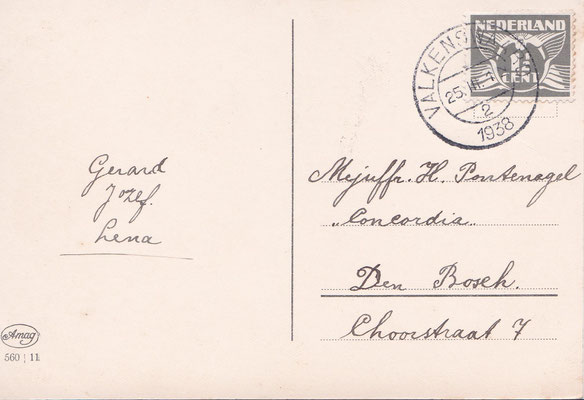 NEDERLAND
CENT
VALKENS
25.
2
1938
Gerard
Jozef.
Lena
Mejuffr. H. Pontenagel
„Concordia„
Den Bosch.
Choorstraat 7
Amag
560 | 11